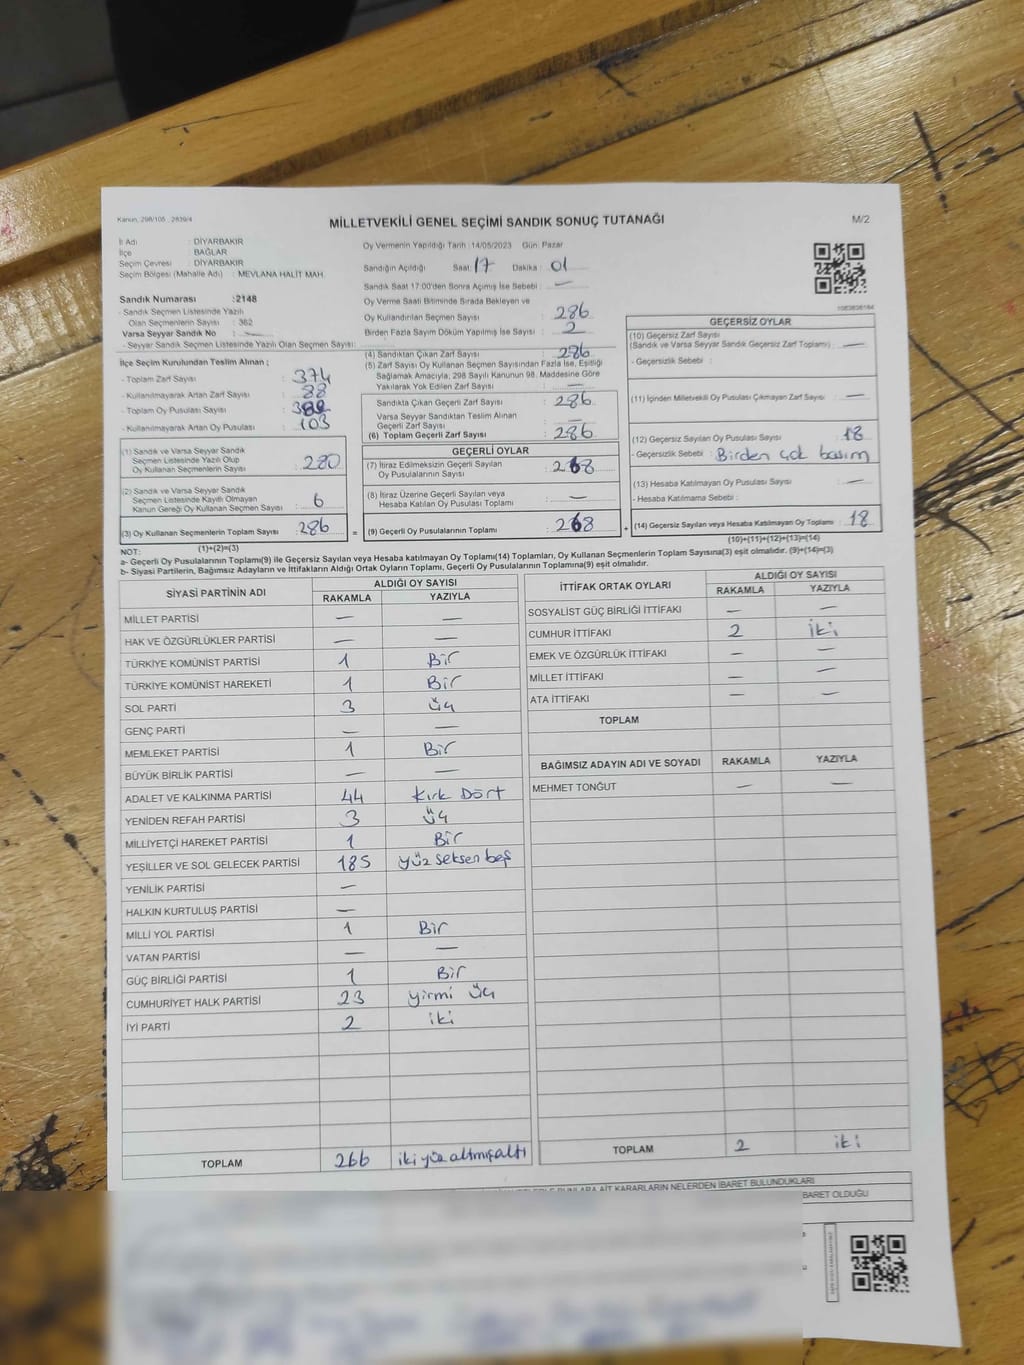 Kanun, 298/105 , 2839/4
MİLLETVEKİLİ GENEL SEÇİMİ SANDIK SONUÇ TUTANAĞI
M/2
İl Adı : DİYARBAKIR
İlçe : BAĞLAR
Seçim Çevresi : DİYARBAKIR
Seçim Bölgesi (Mahalle Adı) : MEVLANA HALİT MAH.
Sandık Numarası :2148
- Sandık Seçmen Listesinde Yazılı
Olan Seçmenlerin Sayısı : 362
Varsa Seyyar Sandık No : —
- Seyyar Sandık Seçmen Listesinde Yazılı Olan Seçmen Sayısı:
Oy Vermenin Yapıldığı Tarih :14/05/2023 Gün: Pazar
Sandığın Açıldığı Saat: 17 Dakika : 01
Sandık Saat 17:00'den Sonra Açılmış İse Sebebi : —
Oy Verme Saati Bitiminde Sırada Bekleyen ve
Oy Kullandırılan Seçmen Sayısı : 286
Birden Fazla Sayım Döküm Yapılmış İse Sayısı : 2
İlçe Seçim Kurulundan Teslim Alınan ;
- Toplam Zarf Sayısı : 374
- Kullanılmayarak Artan Zarf Sayısı : 88
- Toplam Oy Pusulası Sayısı :
- Kullanılmayarak Artan Oy Pusulası : 103
(1) Sandık ve Varsa Seyyar Sandık
Seçmen Listesinde Yazılı Olup
Oy Kullanan Seçmenlerin Sayısı : 280
(2) Sandık ve Varsa Seyyar Sandık
Seçmen Listesinde Kayıtlı Olmayan
Kanun Gereği Oy Kullanan Seçmen Sayısı : 6
(3) Oy Kullanan Seçmenlerin Toplam Sayısı : 286
(1)+(2)=(3)
(4) Sandıktan Çıkan Zarf Sayısı : 286
(5) Zarf Sayısı Oy Kullanan Seçmen Sayısından Fazla İse, Eşitliği
Sağlamak Amacıyla; 298 Sayılı Kanunun 98. Maddesine Göre
Yakılarak Yok Edilen Zarf Sayısı : —
Sandıkta Çıkan Geçerli Zarf Sayısı : 286
Varsa Seyyar Sandıktan Teslim Alınan
Geçerli Zarf Sayısı : —
(6) Toplam Geçerli Zarf Sayısı : 286
GEÇERLİ OYLAR
(7) İtiraz Edilmeksizin Geçerli Sayılan
Oy Pusulalarının Sayısı : 268
(8) İtiraz Üzerine Geçerli Sayılan veya
Hesaba Katılan Oy Pusulası Toplamı : —
= (9) Geçerli Oy Pusulalarının Toplamı : 268 +
1083636164
GEÇERSİZ OYLAR
(10) Geçersiz Zarf Sayısı
(Sandık ve Varsa Seyyar Sandık Geçersiz Zarf Toplamı) : —
- Geçersizlik Sebebi :
(11) İçinden Milletvekili Oy Pusulası Çıkmayan Zarf Sayısı : —
(12) Geçersiz Sayılan Oy Pusulası Sayısı : 18
- Geçersizlik Sebebi : Birden çok basım
(13) Hesaba Katılmayan Oy Pusulası Sayısı : —
- Hesaba Katılmama Sebebi :
(14) Geçersiz Sayılan veya Hesaba Katılmayan Oy Toplamı : 18
(10)+(11)+(12)+(13)=(14)
NOT:
a- Geçerli Oy Pusulalarının Toplamı(9) ile Geçersiz Sayılan veya Hesaba katılmayan Oy Toplamı(14) Toplamları, Oy Kullanan Seçmenlerin Toplam Sayısına(3) eşit olmalıdır. (9)+(14)=(3)
b- Siyasi Partilerin, Bağımsız Adayların ve İttifakların Aldığı Ortak Oyların Toplamı, Geçerli Oy Pusulalarının Toplamına(9) eşit olmalıdır.
SİYASİ PARTİNİN ADI ALDIĞI OY SAYISI
RAKAMLA YAZIYLA
MİLLET PARTİSİ — —
HAK VE ÖZGÜRLÜKLER PARTİSİ — —
TÜRKİYE KOMÜNİST PARTİSİ 1 Bir
TÜRKİYE KOMÜNİST HAREKETİ 1 Bir
SOL PARTİ 3 üç
GENÇ PARTİ — —
MEMLEKET PARTİSİ 1 Bir
BÜYÜK BİRLİK PARTİSİ — —
ADALET VE KALKINMA PARTİSİ 44 Kırk Dört
YENİDEN REFAH PARTİSİ 3 üç
MİLLİYETÇİ HAREKET PARTİSİ 1 Bir
YEŞİLLER VE SOL GELECEK PARTİSİ 185 yüz seksen beş
YENİLİK PARTİSİ —
HALKIN KURTULUŞ PARTİSİ —
MİLLİ YOL PARTİSİ 1 Bir
VATAN PARTİSİ — —
GÜÇ BİRLİĞİ PARTİSİ 1 Bir
CUMHURİYET HALK PARTİSİ 23 yirmi üç
İYİ PARTİ 2 iki
TOPLAM 266 iki yüz altmış altı
İTTİFAK ORTAK OYLARI ALDIĞI OY SAYISI
RAKAMLA YAZIYLA
SOSYALİST GÜÇ BİRLİĞİ İTTİFAKI — —
CUMHUR İTTİFAKI 2 iki
EMEK VE ÖZGÜRLÜK İTTİFAKI — —
MİLLET İTTİFAKI — —
ATA İTTİFAKI — —
TOPLAM
BAĞIMSIZ ADAYIN ADI VE SOYADI RAKAMLA YAZIYLA
MEHMET TONĞUT — —
TOPLAM 2 iki
BUNLARA AİT KARARLARIN NELERDEN İBARET BULUNDUKLARI
İBARET OLDUĞU